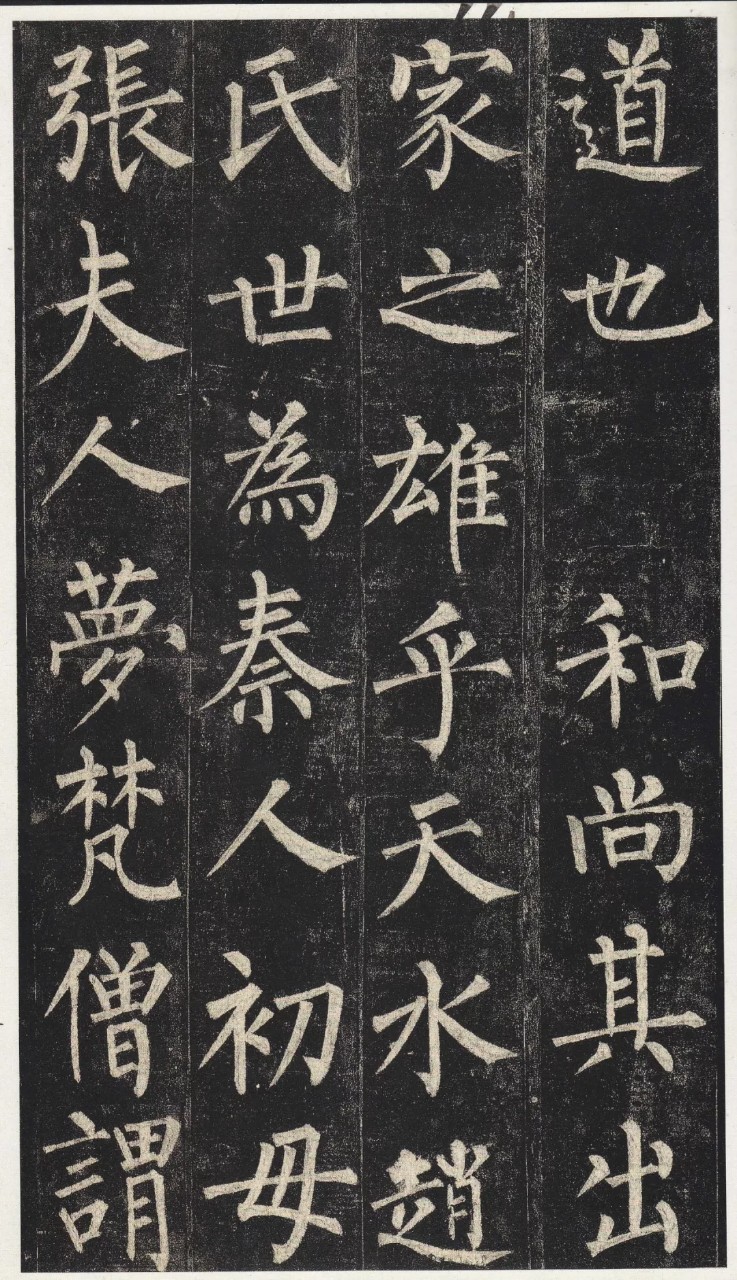 道也　和尚其出
家之雄乎天水趙
氏世為秦人初母
張夫人夢梵僧謂